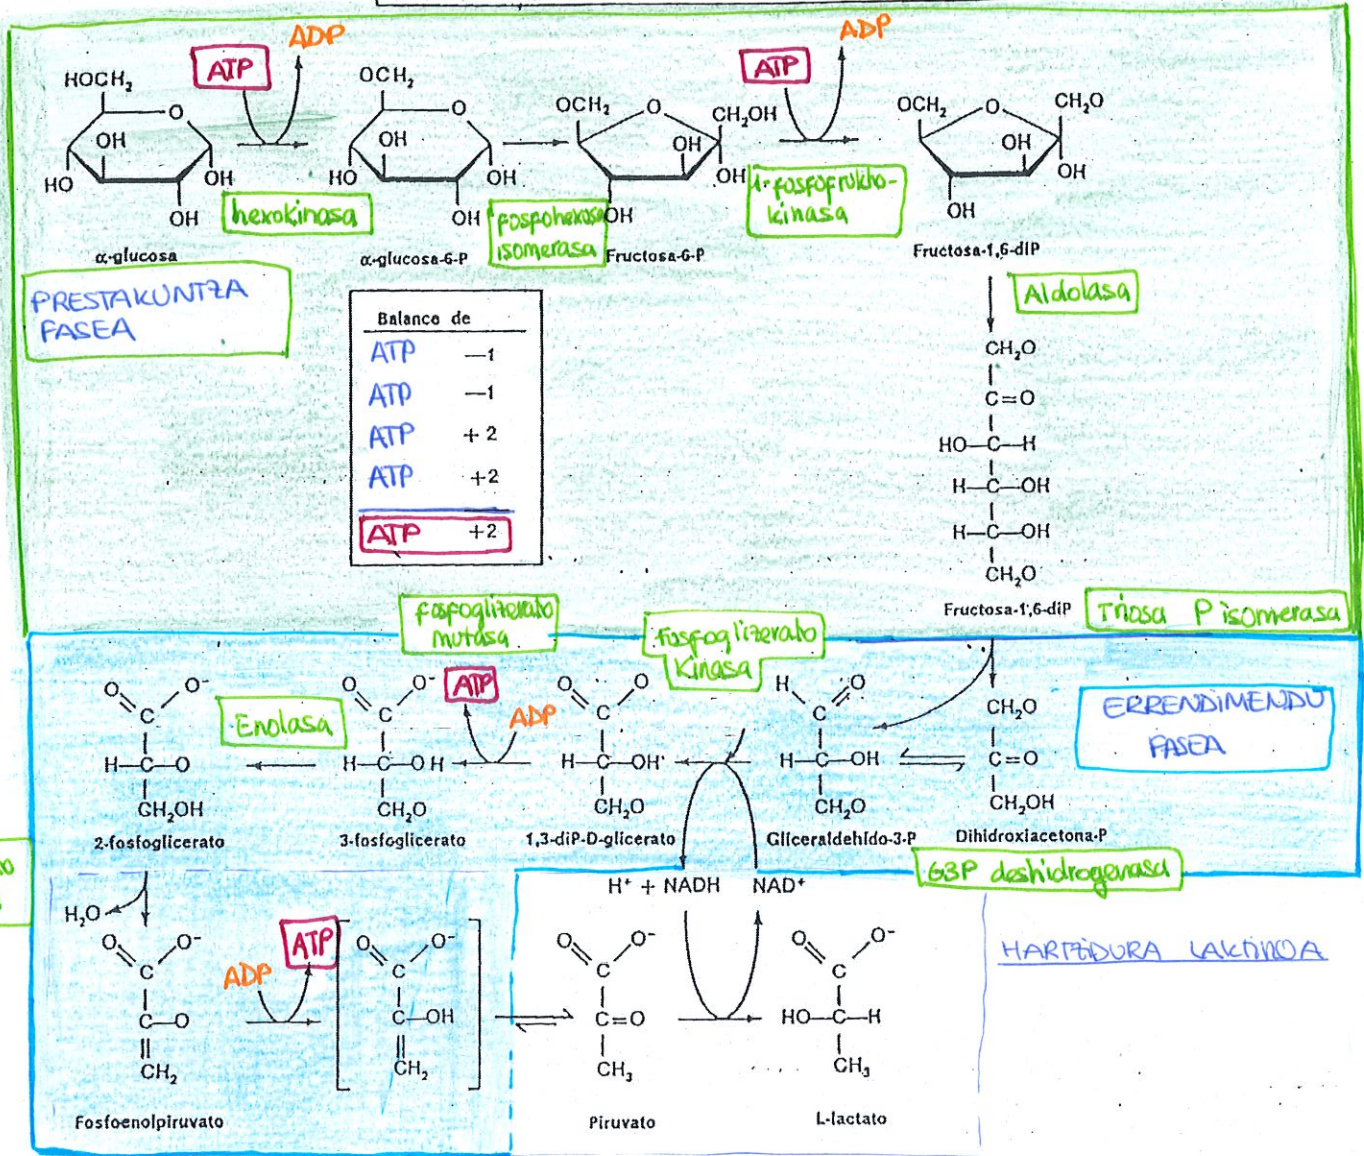 ADP
ADP
ATP
ATP
HOCH₂
O
OH
HO
OH
OH
α-glucosa
hexokinasa
OCH₂
O
OH
HO
OH
OH
α-glucosa-6-P
fosfohexosa
isomerasa
OCH₂
O
CH₂OH
OH
OH
OH
Fructosa-6-P
1-fosfofrukto-
kinasa
OCH₂
O
CH₂O
OH
OH
OH
Fructosa-1,6-diP
PRESTAKUNTZA
FASEA
Aldolasa
Balance de
ATP —1
ATP —1
ATP +2
ATP +2
ATP +2
CH₂O
C=O
HO—C—H
H—C—OH
H—C—OH
CH₂O
Fructosa-1,6-diP
Triosa P isomerasa
fosfoglizerato
mutasa
Fosfoglizerato
kinasa
ERRENDIMENDU
FASEA
Enolasa
ATP
ADP
O O⁻
C
H—C—O
CH₂OH
2-fosfoglicerato
O O⁻
C
H—C—OH
CH₂O
3-fosfoglicerato
O O
C
H—C—OH
CH₂O
1,3-diP-D-glicerato
H O
C
H—C—OH
CH₂O
Gliceraldehido-3-P
CH₂O
C=O
CH₂OH
Dihidroxiacetona-P
G3P deshidrogenasa
H⁺ + NADH NAD⁺
H₂O
O O⁻
C
C—O
CH₂
Fosfoenolpiruvato
ADP
ATP
O O⁻
C
C—OH
CH₂
O O⁻
C
C=O
CH₃
Piruvato
O O⁻
C
HO—C—H
CH₃
L-lactato
HARTZIDURA LAKTIKOA